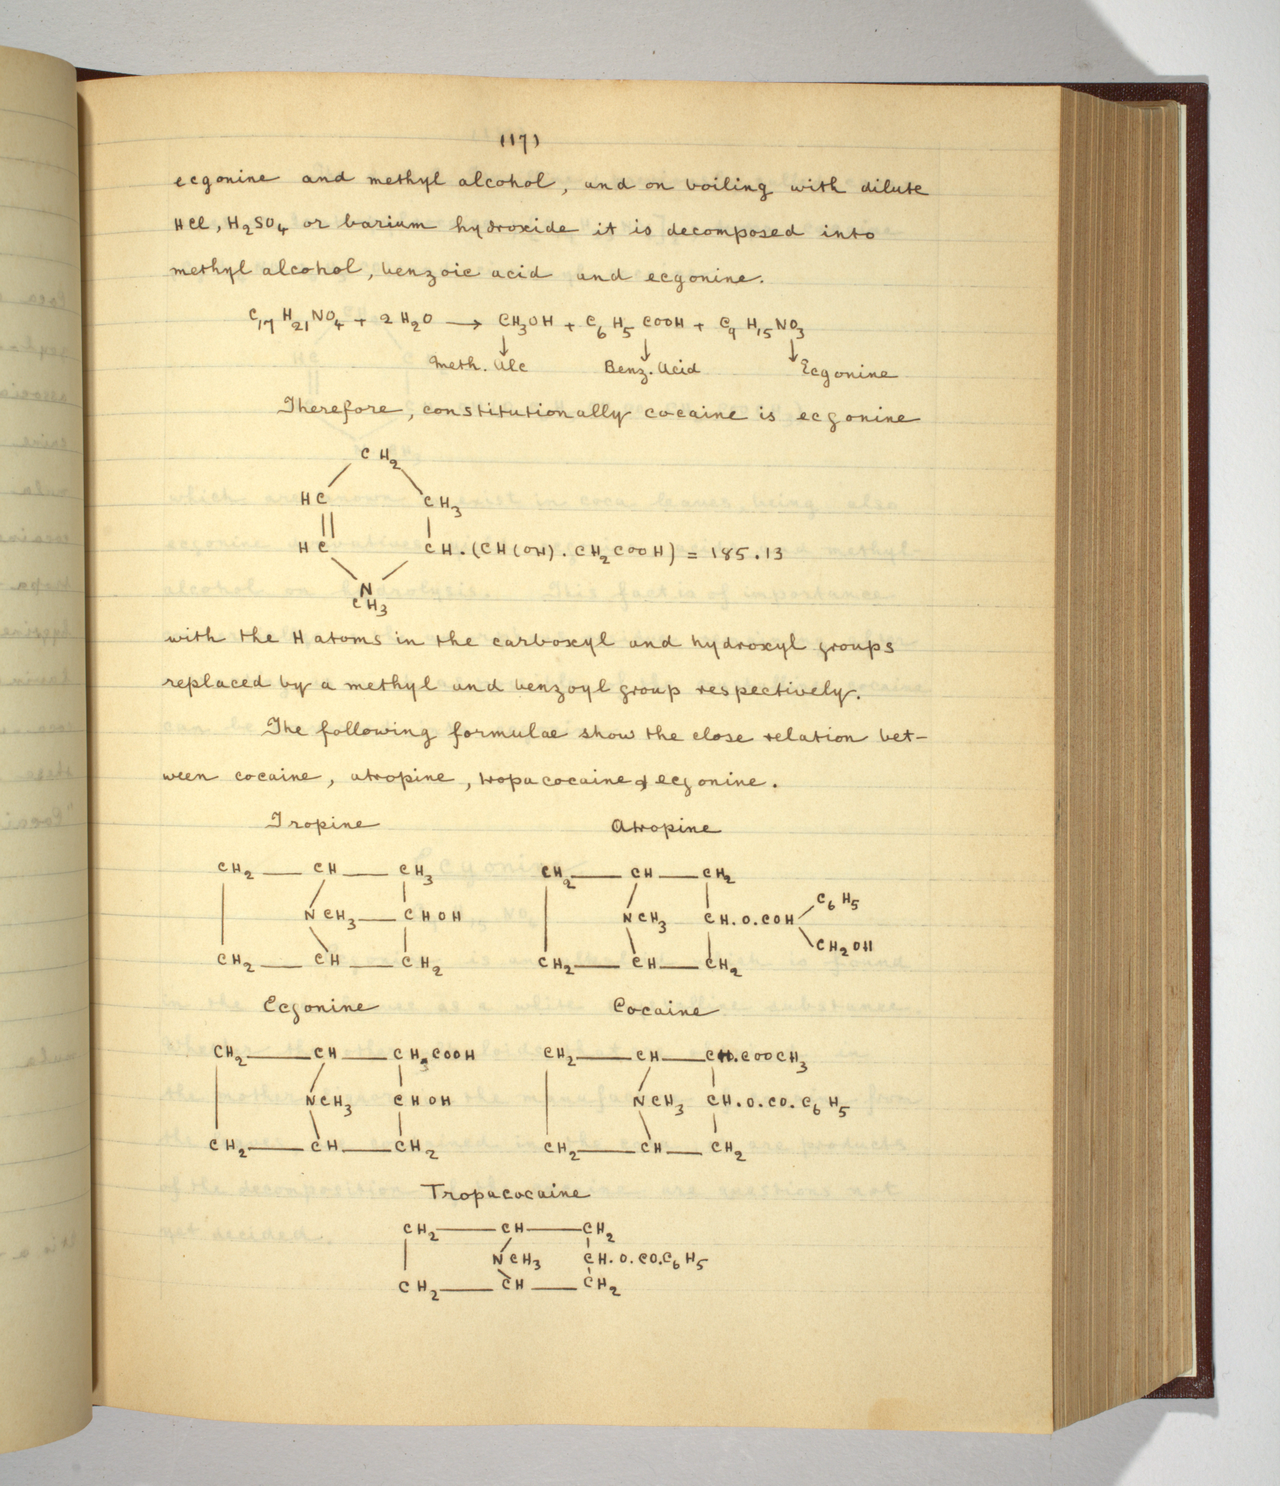 (17)
ecgonine and methyl alcohol, and on boiling with dilute
HCl, H2SO4 or barium hydroxide it is decomposed into
methyl alcohol, benzoic acid and ecgonine.
C17 H21 NO4 + 2 H2O → CH3OH + C6 H5 COOH + C9 H15 NO3
Meth. Alc Benz. Acid Ecgonine
Therefore, constitutionally cocaine is ecgonine
CH2
HC CH3
HC CH.(CH(OH).CH2COOH) = 185.13
N
CH3
with the H atoms in the carboxyl and hydroxyl groups
replaced by a methyl and benzoyl group respectively.
The following formulae show the close relation bet-
ween cocaine, atropine, tropacocaine & ecgonine.
Tropine Atropine
CH2 — CH — CH3 CH2 — CH — CH2
C6 H5
NCH3 — CHOH NCH3 CH.O.COH
CH2OH
CH2 — CH — CH2 CH2 — CH — CH2
Ecgonine Cocaine
CH2 — CH — CH.COOH CH2 — CH — CH.COOCH3
NCH3 CHOH NCH3 CH.O.CO.C6H5
CH2 — CH — CH2 CH2 — CH — CH2
Tropacocaine
CH2 — CH — CH2
NCH3 CH.O.CO.C6H5
CH2 — CH — CH2